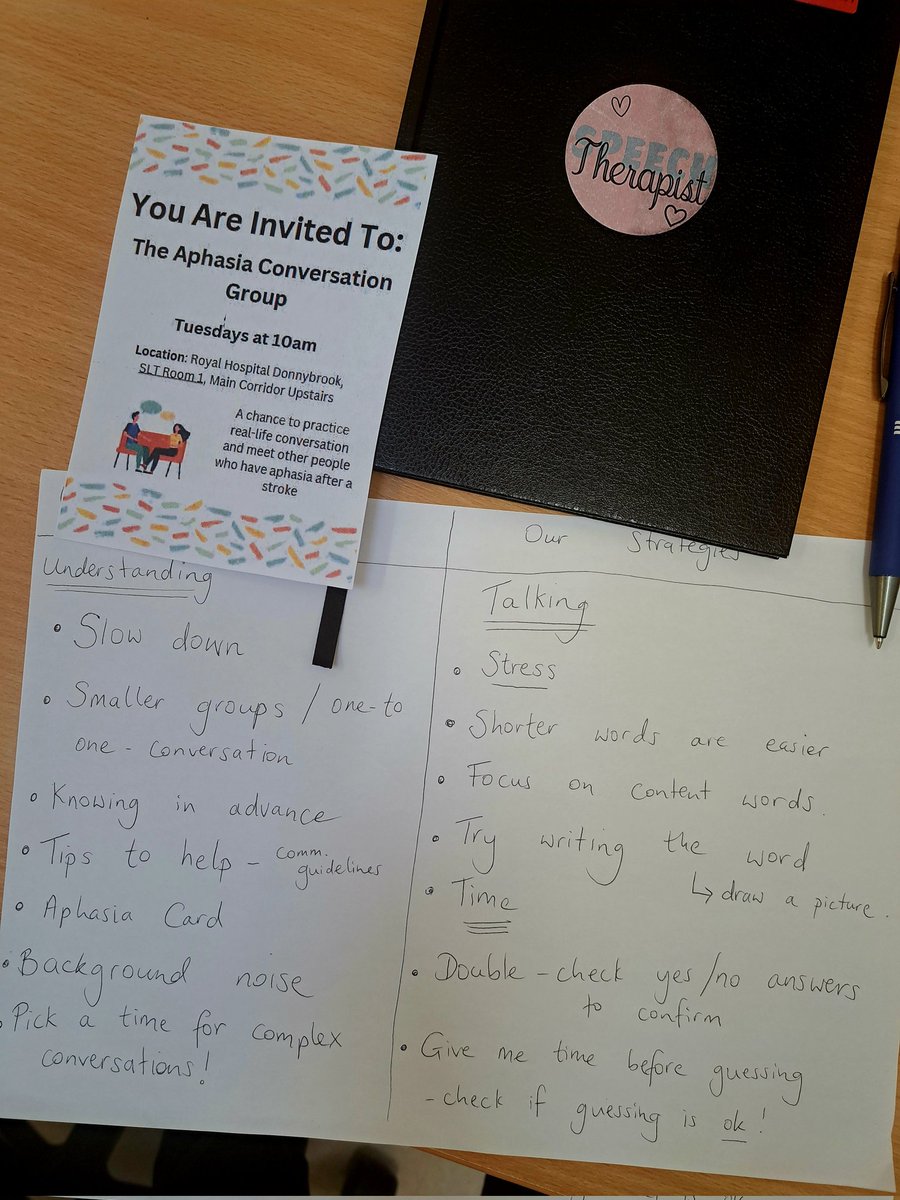 SPEECH
Therapist
You Are Invited To:
The Aphasia Conversation
Group
Tuesdays at 10am
Location: Royal Hospital Donnybrook,
SLT Room 1, Main Corridor Upstairs
A chance to practice
real-life conversation
and meet other people
who have aphasia after a
stroke
Our Strategies
Understanding
• Slow down
• Smaller groups / one-to
one - conversation
• Knowing in advance
• Tips to help - comm.
guidelines
• Aphasia Card
• Background noise
• Pick a time for complex
conversations!
Talking
• Stress
• Shorter words are easier
• Focus on content words.
• Try writing the word
↳ draw a picture.
• Time
• Double-check yes/no answers
to confirm
• Give me time before guessing
- check if guessing is ok!